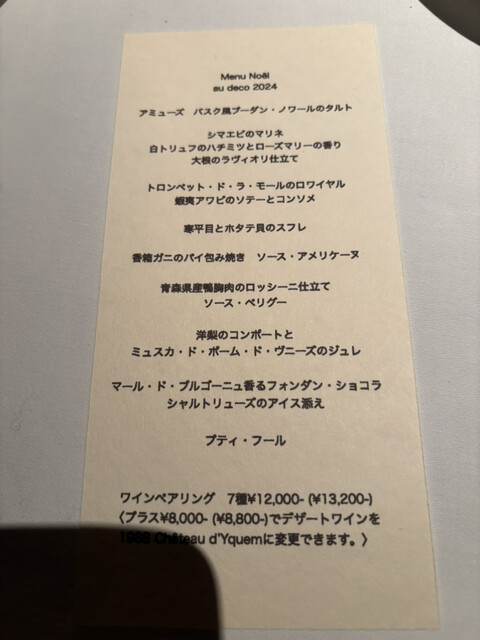 Menu Noël
au deco 2024
アミューズ　バスク風ブーダン・ノワールのタルト
シマエビのマリネ
白トリュフのハチミツとローズマリーの香り
大根のラヴィオリ仕立て
トロンペット・ド・ラ・モールのロワイヤル
蝦夷アワビのソテーとコンソメ
寒平目とホタテ貝のスフレ
香箱ガニのパイ包み焼き　ソース・アメリケーヌ
青森県産鴨胸肉のロッシーニ仕立て
ソース・ペリグー
洋梨のコンポートと
ミュスカ・ド・ボーム・ド・ヴニーズのジュレ
マール・ド・ブルゴーニュ香るフォンダン・ショコラ
シャルトリューズのアイス添え
プティ・フール
ワインペアリング　7種¥12,000- (¥13,200-)
〈プラス¥8,000- (¥8,800-)でデザートワインを
1988 Château d'Yquemに変更できます。〉